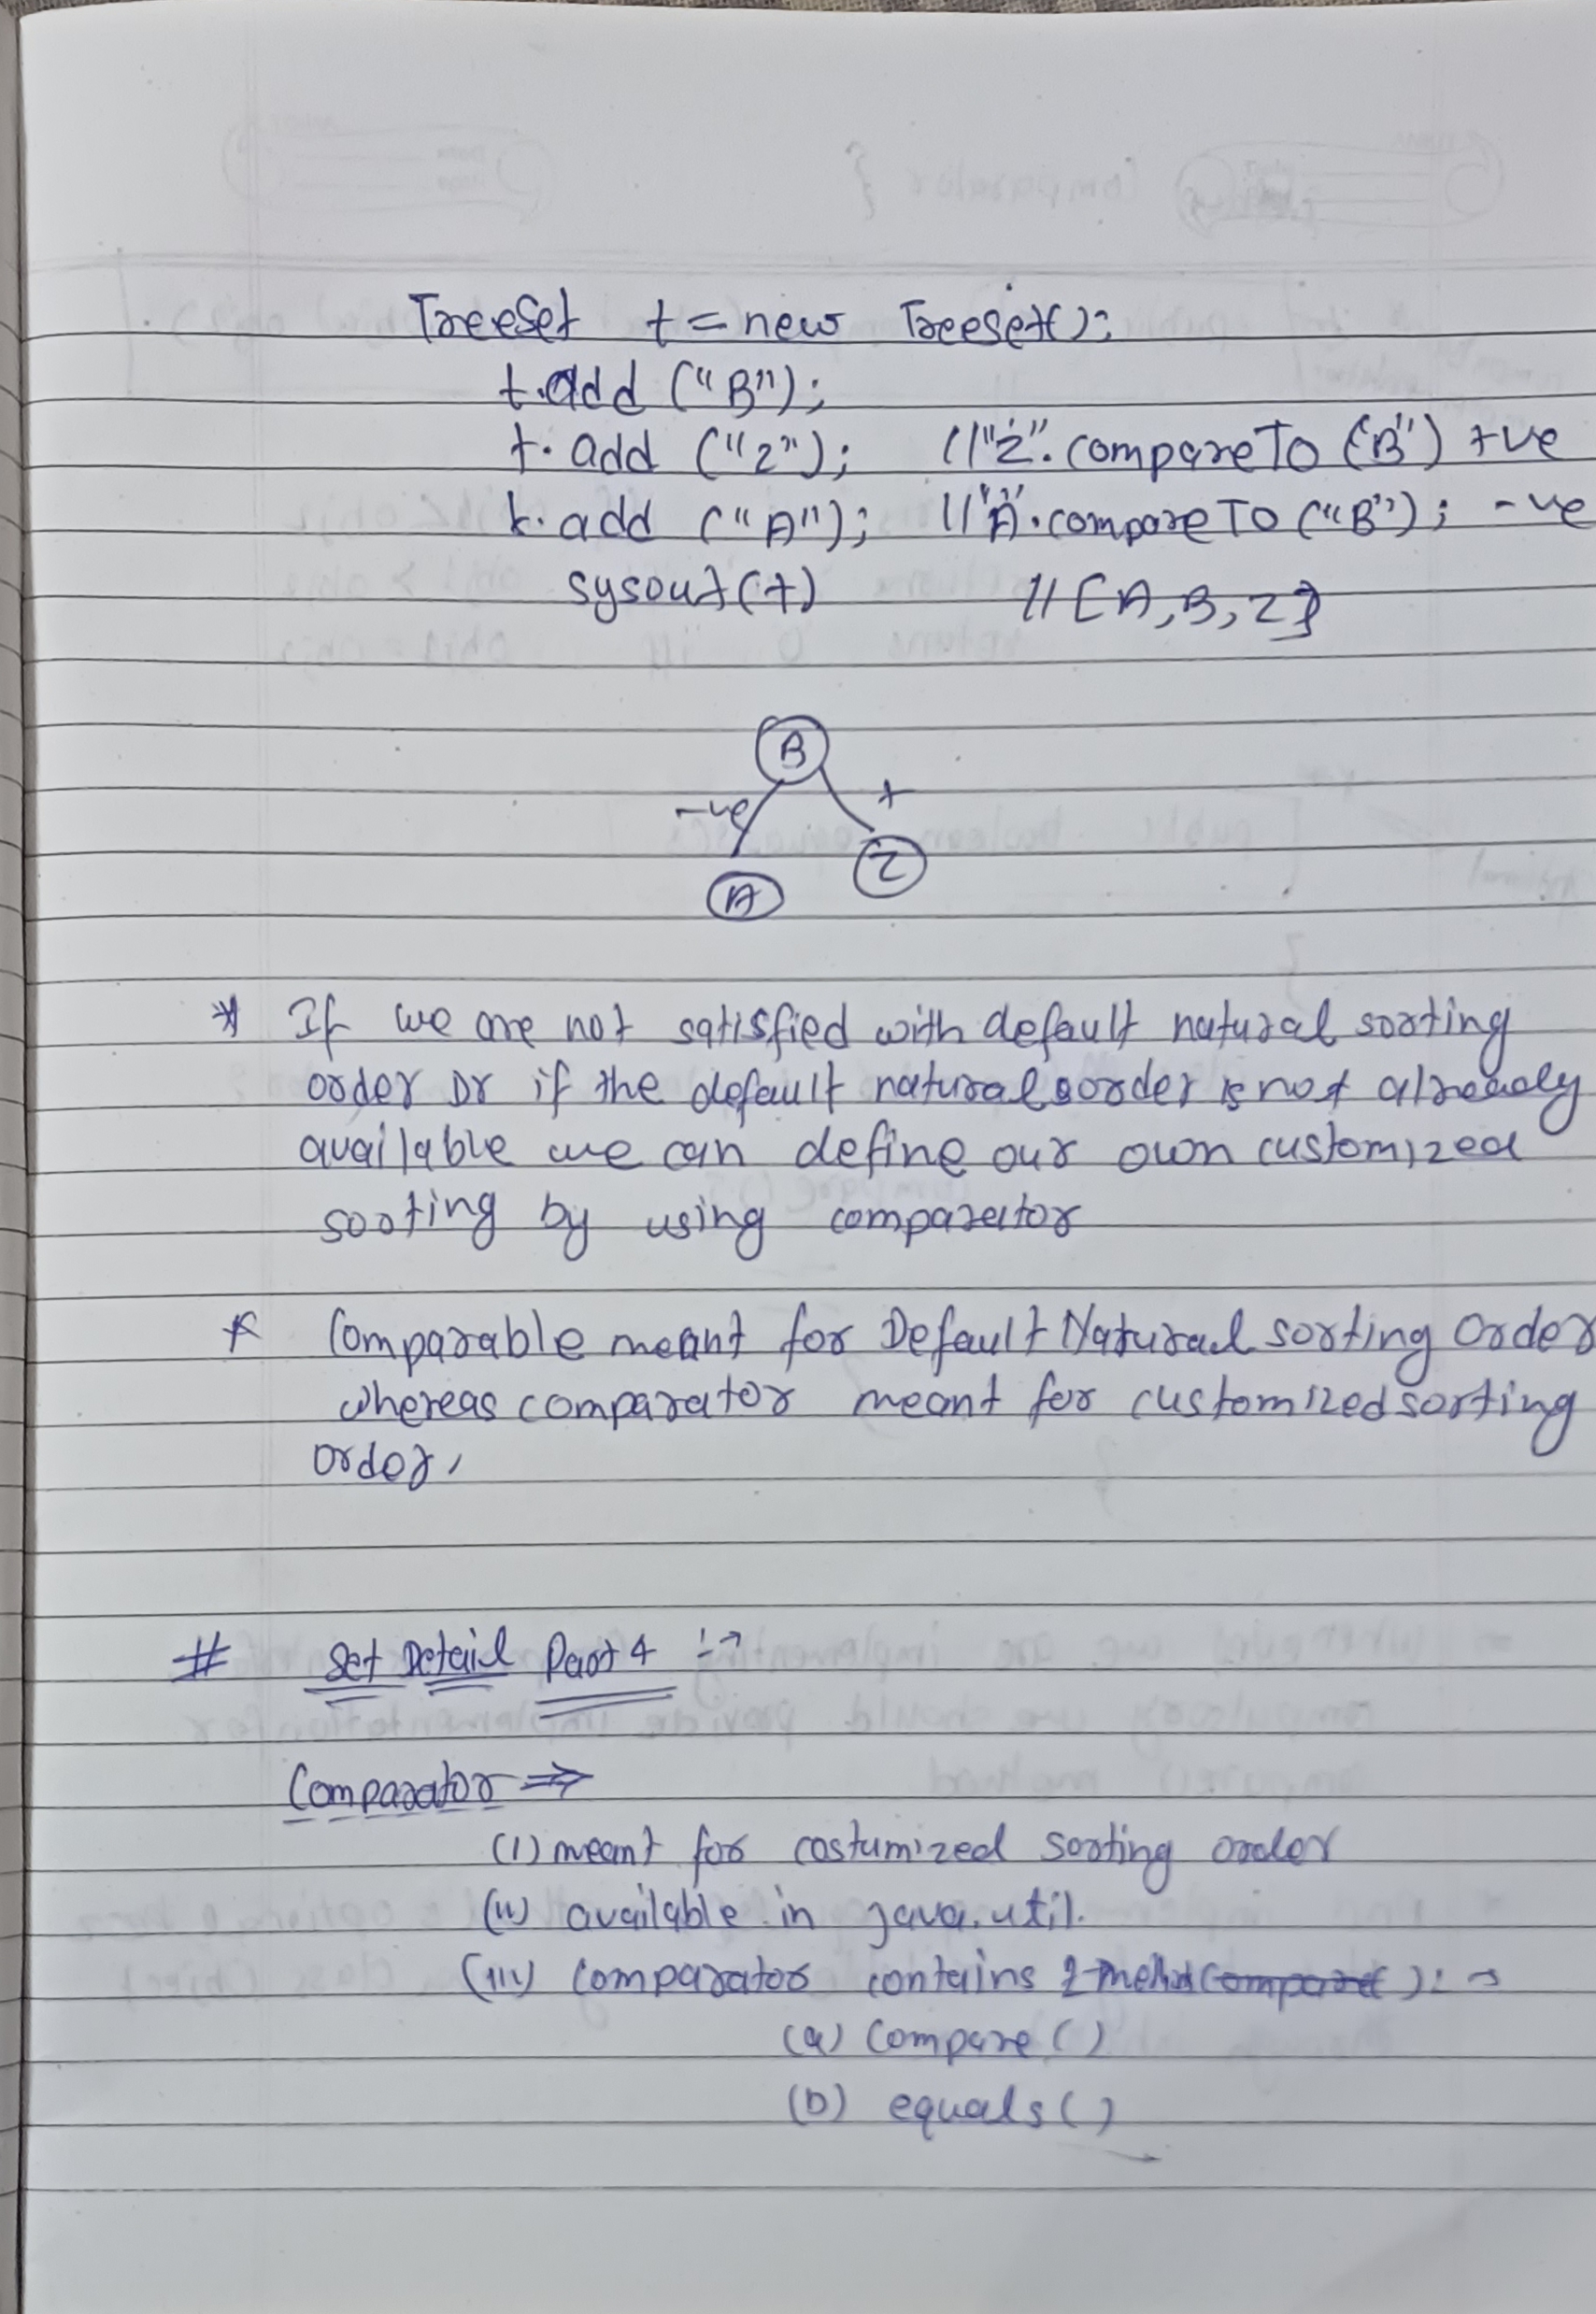 TreeSet t = new TreeSet();
t.add ("B");
t.add ("Z"); // "Z".compareTo ("B") +ve
t.add ("A"); // "A".compareTo ("B"); -ve
sysout(t) // [A,B,Z]
B
-ve +
Z
A
* If we are not satisfied with default natural sorting
order or if the default natural sorder is not already
available we can define our own customized
sorting by using comparator
* Comparable meant for Default Natural sorting order
whereas comparator meant for customized sorting
order,
# Set Detail Part 4 :→
Comparator ⇒
(i) meant for costumized sorting order
(ii) available in java.util.
(iii) Comparator contains 2 method ) : →
(a) Compare ()
(b) equals ()